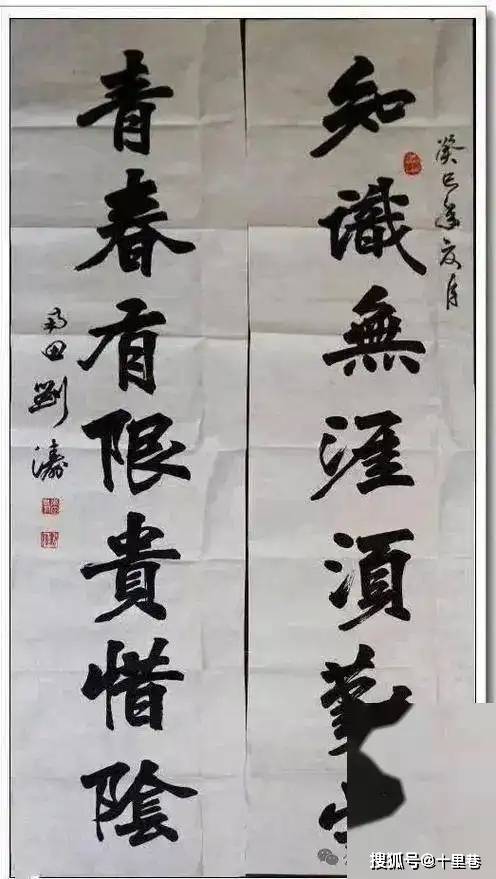 癸巳年夏月
知識無涯須勤
青春有限貴惜陰
田劉濤
搜狐号@十里巷